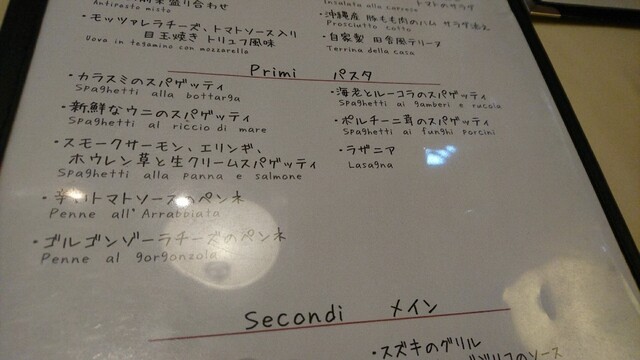 盛り合わせ
Antipasto misto
・モッツァレラチーズ、トマトソース入り
目玉焼き トリュフ風味
Uova in tegamino con mozzarella
トマトのサラダ
Insalata alla caprese
・沖縄産 豚もも肉のハム サラダ添え
Prosciutto cotto
・自家製 田舎風テリーヌ
Terrina della casa
Primi パスタ
・カラスミのスパゲッティ
Spaghetti alla bottarga
・新鮮なウニのスパゲッティ
Spaghetti al riccio di mare
・スモークサーモン、エリンギ、
ホウレン草と生クリームスパゲッティ
Spaghetti alla panna e salmone
・辛いトマトソースのペンネ
Penne all'Arrabbiata
・ゴルゴンゾーラチーズのペンネ
Penne al gorgonzola
・海老とルーコラのスパゲッティ
Spaghetti ai gamberi e rucola
・ポルチーニ茸のスパゲッティ
Spaghetti ai funghi porcini
・ラザニア
Lasagna
Secondi メイン
・スズキのグリル
のソース